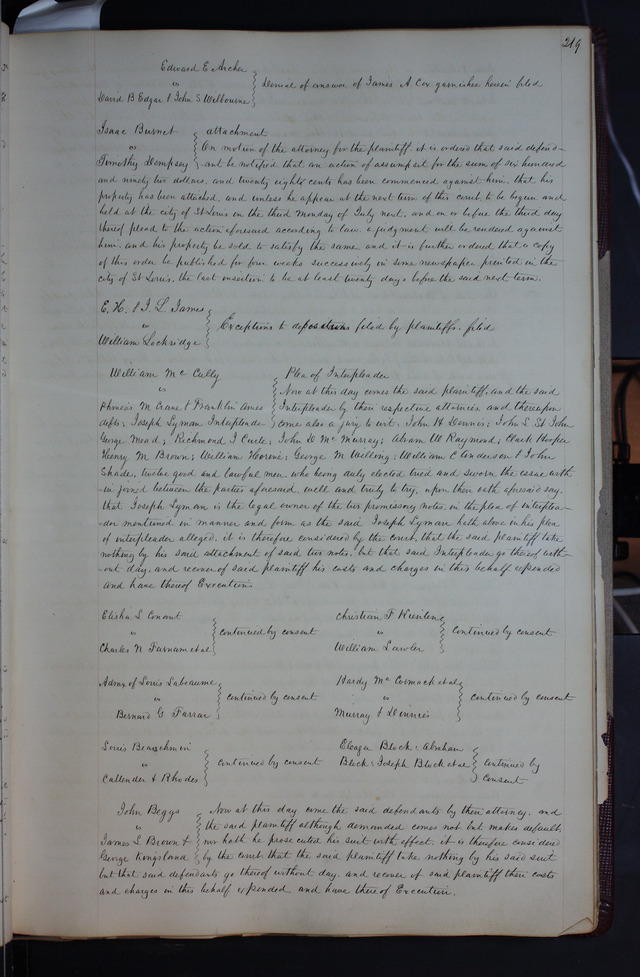 219
Edward E. Archer
vs
David B Edgar & John S Welbourne
Denial of answer of James A Cox garnishee herein filed
Isaac Burnet
vs
Timothy Dempsey
attachment
On motion of the attorney for the plaintiff. it is ordered that said defend-
-ant be notified that an action of assumpsit for the sum of six hundred
and ninety two dollars. and twenty eight cents has been commenced against him. that his
property has been attached. and unless he appear at the next term of this court to be begun and
held at the city of St Louis on the third Monday of July next. and on or before the third day
thereof plead to the action aforesaid according to law. a judgment will be rendered against
him. and his property be sold to satisfy the same and it is further ordered that a copy
of this order be published for four weeks successively in some newspaper printed in the
city of St Louis. the last insertion to be at least twenty days before the said next term.
E. H. & J. L. James
vs
William Lockridge
Exceptions to depositions filed by plaintiffs. filed
William Mc Cully
vs
Phineas M Crane & Franklin Ames
defts; Joseph Lyman Interpleader
Plea of Interpleader
Now at this day comes the said plaintiff. and the said
Interpleader by their respective attornies and thereupon
come also a jury to wit. John H Dennis; John L St John
George Mead; Richmond J Curle; John D Mc Murray; Abram W Raymond; Clark Hooper
Henry M Brown; William Thorene; George M Welling; William C Anderson & John
Shade, twelve good and lawful men who being duly elected tried and sworn the issue with
-in joined between the parties aforesaid. well and truly to try. upon their oath aforesaid say.
that Joseph Lyman is the legal owner of the two promissory notes. in the plea of interplea-
-der mentioned in manner and form as the said Joseph Lyman hath above in his plea
of interpleader alleged. it is therefore considered by the court. that the said plaintiff take
nothing by his said attachment of said two notes. but that said Interpleader go thereof with-
-out day. and recover of said plaintiff his costs and charges in this behalf expended
and have thereof Execution
Elisha L Conant
vs
Charles N Farnam et al
continued by consent
Christian F
vs
William Lawler
continued by consent
Admx of Louis Labeaume
vs
Bernard G Farrar
continued by consent
Hardy Mc Cormack et al
vs
Murray & Dinnies
continued by consent
Louis
vs
Callender & Rhodes
continued by consent
Eleazar Block; Abraham
Block; Joseph Block et al
continued by
Consent
John Beggs
vs
James L Brown &
George Kingsland
Now at this day come the said defendants by their attorney. and
the said plaintiff although demanded comes not but makes default
nor hath he prosecuted his suit with effect. it is therefore considered
by the court that the said plaintiff take nothing by his said suit
but that said defendants go thereof without day. and recover of said plaintiff their costs
and charges in this behalf expended and have thereof Execution.